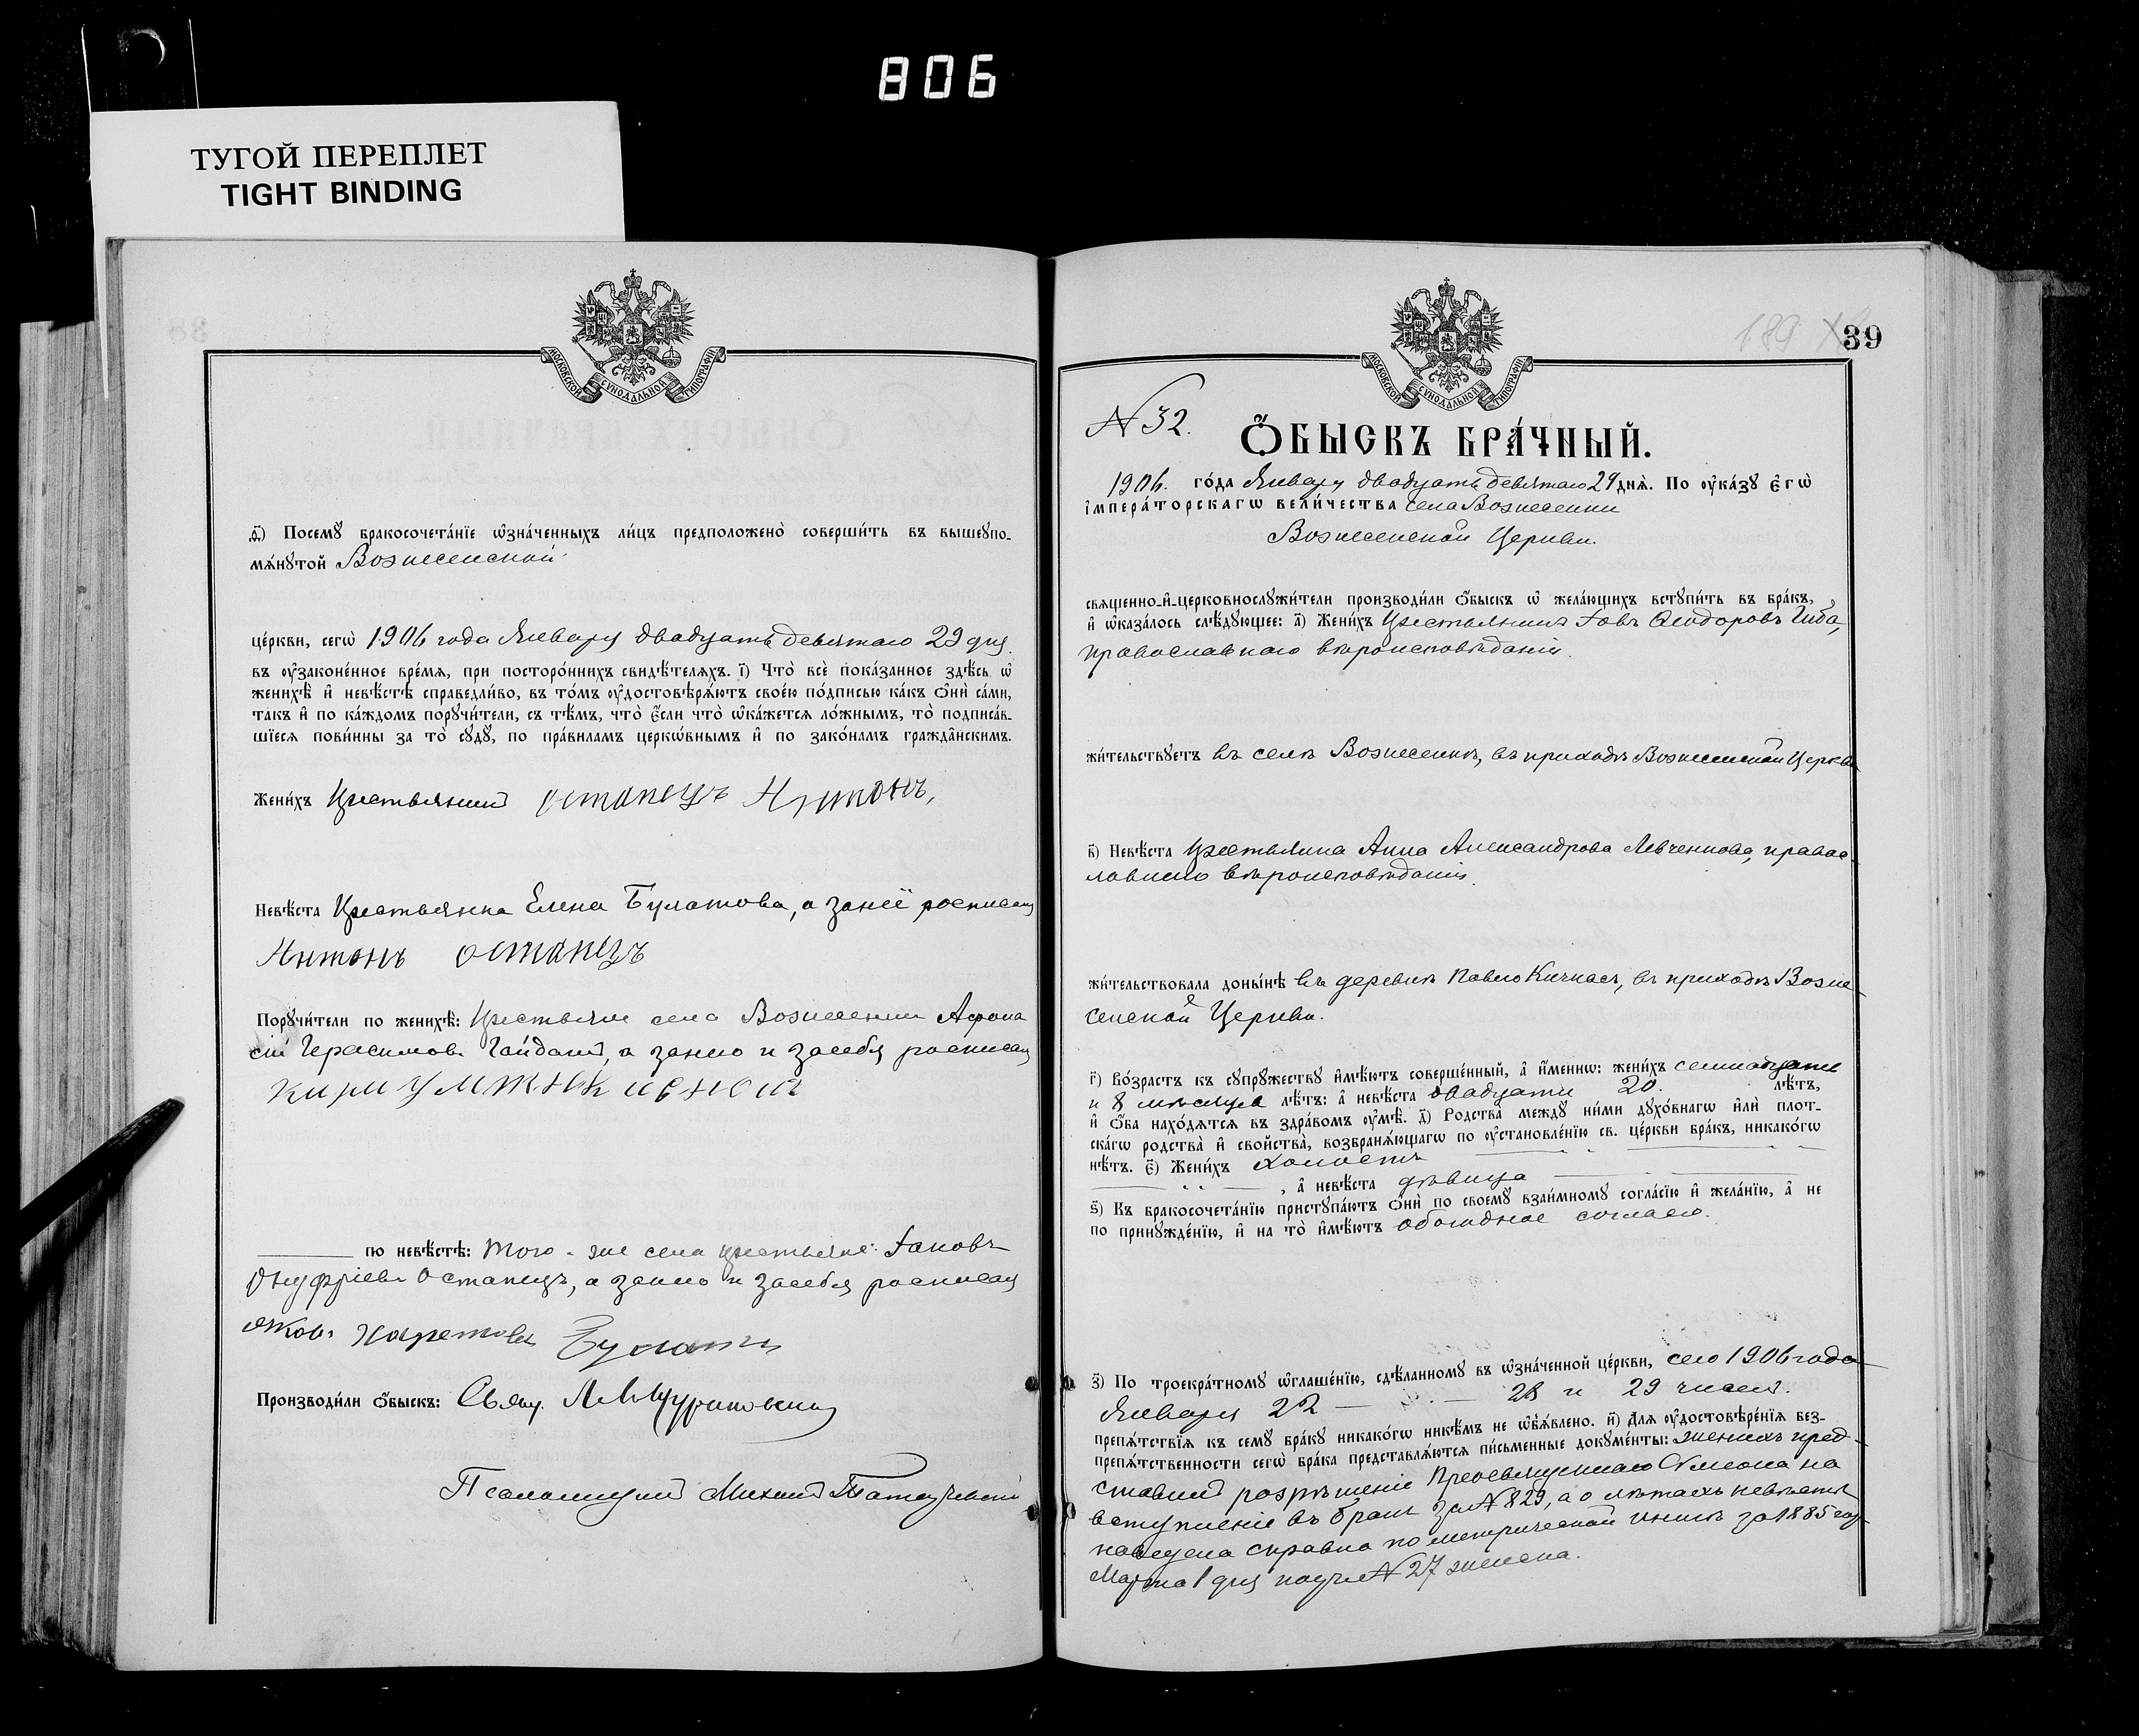 806
ТУГОЙ ПЕРЕПЛЕТ
TIGHT BINDING
МОСКОВСКОЙ СѴНОДАЛЬНОЙ ТИПОГРАФІИ
д҃) Посемꙋ̀ бракосочета́нїе ѡ҆зна́ченныхъ ли́цъ предположено̀ соверши́ть въ вышеꙋпо-
мѧ́нꙋтой Вознесенской
це́ркви, сегѡ̀ 1906 года Января двадцать девятаго 29 дня.
въ оу҆законе́нное вре́мѧ, при посторо́ннихъ свидѣ́телѧхъ. і҃) Что̀ всѐ пока́занное здѣ́сь ѡ҆
женихѣ̀ и҆ невѣ́стѣ справедли́во, въ то́мъ оу҆достовѣрѧ́ютъ свое́ю по́дписью ка́къ ѻ҆нѝ са́ми,
та́къ и҆ по ка́ждомъ порꙋчи́тели, съ тѣ́мъ, что̀ є҆́сли что̀ ѡ҆ка́жетсѧ ло́жнымъ, то̀ подписа́в-
шїесѧ пови́нны за то̀ сꙋдꙋ̀, по пра́виламъ церкѡ́внымъ и҆ по зако́намъ гражда̂нскимъ.
Жени́хъ Крестьянинъ Останецъ Антонъ,
Невѣ́ста Крестьянка Елена Булатова, а за неё росписал
Антонъ Останецъ
Порꙋчи́тели по женихѣ̀: Крестьяне села Вознесенки Афона
сій Герасимовъ Гайдай, а за него и за себя росписал
по невѣ́стѣ: того-же села крестьяне: Іаковъ
Онуфріевъ Останецъ, а за него и за себя росписал
Яковъ Харетовъ Булатъ
Производи́ли ѻ҆́быскъ: Свящ.
Псаломщикъ Михаил
189
39
МОСКОВСКОЙ СѴНОДАЛЬНОЙ ТИПОГРАФІИ
N 32.
Ѻ҆́БЫСКЪ БРА́ЧНЫЙ.
1906. го́да Января двадцать девятаго 29 днѧ̀. По оу҆ка́зꙋ є҆гѡ̀
і҆мпера́торскагѡ вели́чества села Вознесенки
Вознесенской Церкви.
свѧщенно-и҆-церковнослꙋжи́тели производи́ли ѻ҆́быскъ ѡ҆ жела́ющихъ встꙋпи́ть въ бра́къ,
и҆ ѡ҆каза́лось слѣ́дꙋющее: а҃) Жени́хъ Крестьянинъ Іовъ Ѳеодоровъ Гиба,
православнаго вѣроисповѣданія.
жи́тельствꙋетъ въ селѣ Вознесенкѣ, въ приходѣ Вознесенской Церкви
в҃) Невѣ́ста Крестьянка Анна Александрова Левченкова, правос-
лавнаго вѣроисповѣданія.
жи́тельствовала доны́нѣ въ деревнѣ Павло Кичкасъ, въ приходѣ Возне-
сенской Церкви.
г҃) Во́зрастъ къ сꙋпрꙋ́жествꙋ и҆мѣ́ютъ соверше́нный, а҆ и҆́меннѡ: жени́хъ семнадцати
и 8 мѣсяцев лѣ́тъ: а҆ невѣ́ста двадцати 20. лѣ́тъ,
и҆ ѻ҆́ба нахо́дѧтсѧ въ здра́вомъ оу҆мѣ̀. д҃) Родства̀ междꙋ̀ ни́ми дꙋхо́внагѡ и҆лѝ плот-
ска́гѡ родства̀ и҆ свойства̀, возбранѧ́ющагѡ по оу҆становле́нїю св. це́ркви бра́къ, никако́гѡ
нѣ́тъ. є҃) Жени́хъ холостъ
, а҆ невѣ́ста дѣвица
ѕ҃) Къ бракосочета́нїю пристꙋпа́ютъ ѻ҆нѝ по своемꙋ̀ взаи́мномꙋ согла́сїю и҆ жела́нїю, а҆ не
по принꙋжде́нїю, и҆ на то̀ и҆мѣ́ютъ обоюдное согласіе.
з҃) По троекра́тномꙋ ѡ҆глаше́нїю, сдѣ́ланномꙋ въ ѡ҆зна́ченной це́ркви, сего 1906 года
Января 22 — 28 и 29 чиселъ.
препѧ́тствїѧ къ семꙋ̀ бра́кꙋ никако́гѡ никѣ́мъ не ѡ҆б̾ѧ́влено. и҃) Длѧ оу҆достовѣре́нїѧ без-
препѧ́тственности сегѡ̀ бра́ка представлѧ́ютсѧ пи́сьменные докꙋме́нты: женихъ пред-
ставилъ розрѣшеніе Преосвященнаго Сѵмеона на
вступленіе въ бракъ за N 829, а о лѣтахъ невѣсты
наведена справка по метрической книгѣ за 1885 год
Марта 1 дня подъ N 27 женска.